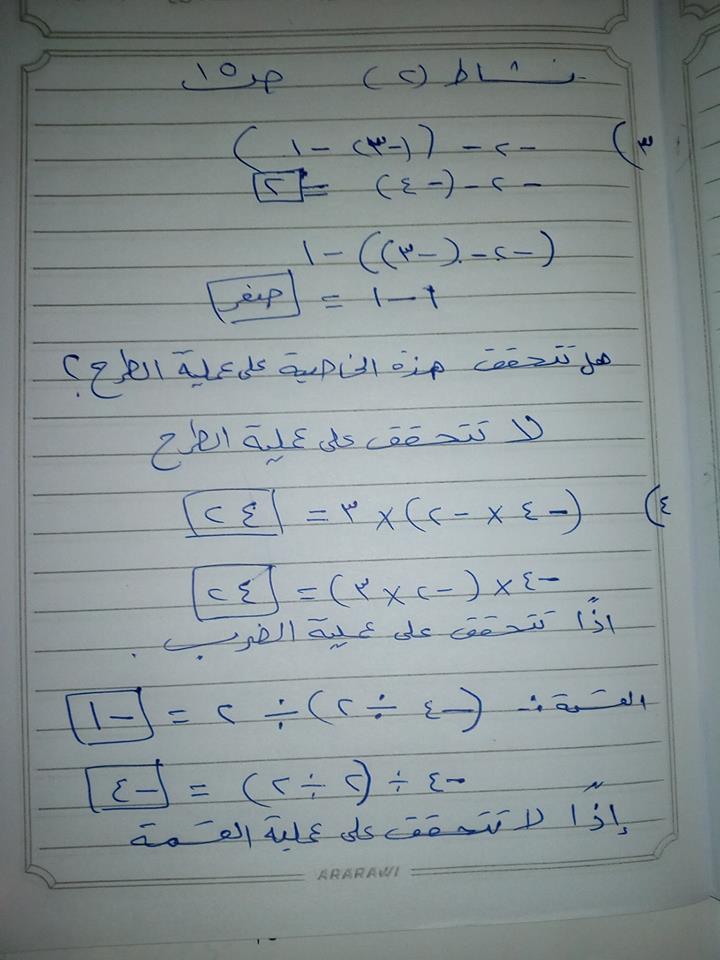 نشاط (٢) ص ١٥
٣) -٢ - ((-٣) - ١)
-٢ - (-٤) = ٢
(-٢ - (-٣)) - ١
١ - ١ = صفر
هل تتحقق هذة الخاصية على عملية الطرح؟
لا تتحقق على عملية الطرح
٤) (-٤ × -٢) × ٣ = ٢٤
-٤ × (-٢ × ٣) = ٢٤
اذًا تتحقق على عملية الضرب .
القسمة :- (-٤ ÷ ٢) ÷ ٢ = -١
-٤ ÷ (٢ ÷ ٢) = -٤
إذًا لا تتحقق على عملية القسمة
ARARAWI